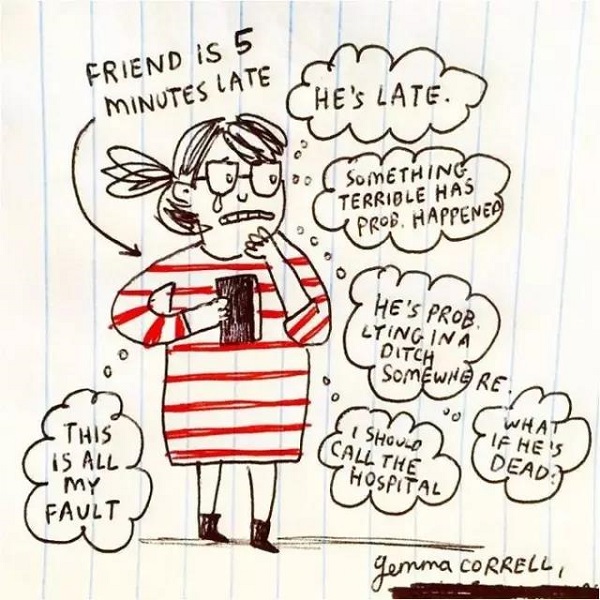 FRIEND IS 5
MINUTES LATE
HE'S LATE.
SOMETHING
TERRIBLE HAS
PROB. HAPPENED
HE'S PROB.
LYING IN A
DITCH
SOMEWHERE.
I SHOULD
CALL THE
HOSPITAL
WHAT
IF HE'S
DEAD?
THIS
IS ALL
MY
FAULT
gemma CORRELL,